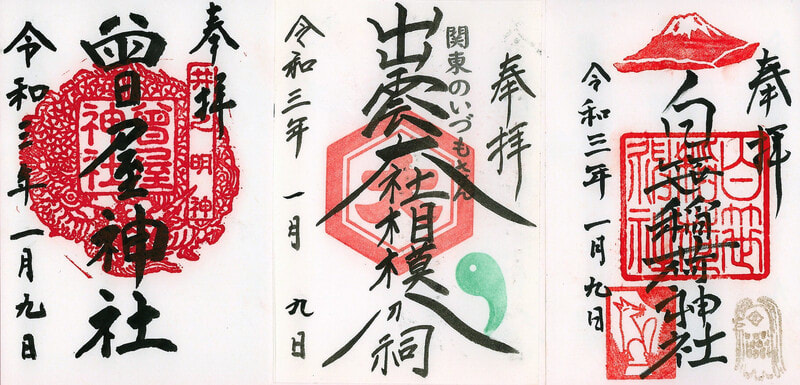 奉拝
井之明神
曾屋神社
曾屋神社
令和三年一月九日
奉拝
関東のいづもさん
出雲大社相模分祠
令和三年 一月 九日
奉拝
白笹稲荷神社
令和三年 一月九日